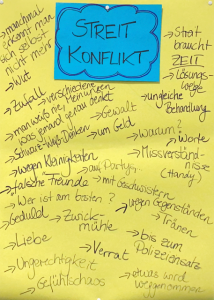 → manchmal
erkennt man
sich selbst
nicht mehr
→ Wut
STREIT
KONFLIKT
→ Streit
braucht
ZEIT
→ Lösungs-
wege
→ Zufall
→ verschiedene
Meinungen
→ man weiß nie,
was jemand genau denkt
→ Gewalt
→ ungleiche
Behandlung
→ Schwarz-Weiß-Denken
→ um Geld
→ Warum?
→ Worte
→ wegen Kleinigkeiten
→ Missverständ-
nisse
(Handy)
→ auf Partys
→ falsche Freunde
→ mit Geschwistern
→ Wer ist am besten?
→ wegen Gegenständen
→ Geduld
→ Zwick-
mühle
→ Tränen
→ Liebe
→ bis zum
Polizeieinsatz
→ Verrat
→ Ungerechtigkeit
→ Gefühlschaos
→ etwas wird
weggenommen